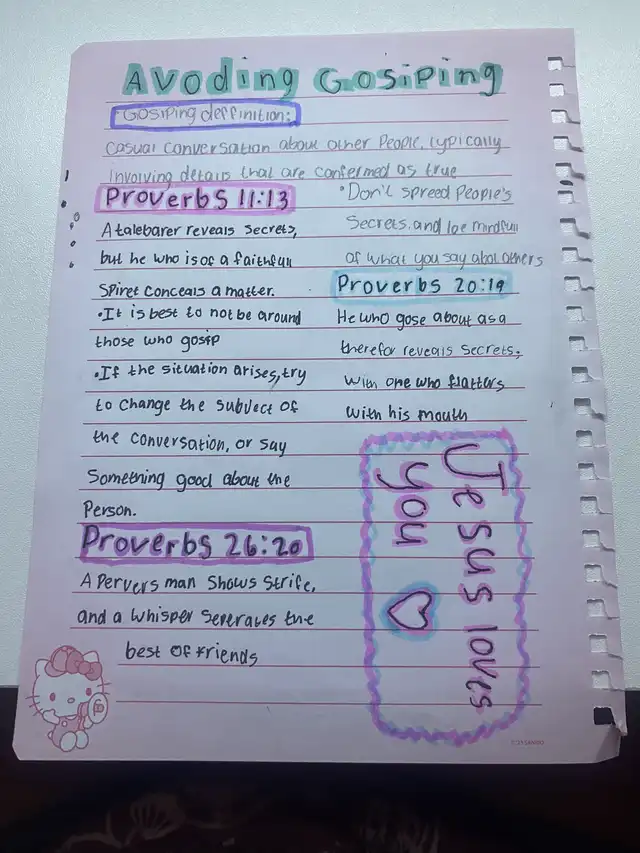 Avoding Gosiping
Gosiping deffinition:
casual conversation about other people, typically
involving details that are confermed as true
Proverbs 11:13
A talebarer reveals secrets,
but he who is of a faithfull
spiret conceals a matter.
•It is best to not be around
those who gosip
•If the situation arises, try
to change the subject of
the conversation, or say
something good about the
person.
Proverbs 26:20
A pervers man shows strife,
and a whisper seperates the
best of friends
•Don't spreed people's
secrets, and be mindfull
of what you say about others
Proverbs 20:19
He who gose about as a
therefor reveals secrets,
with one who flatters
with his mouth
Jesus loves
you